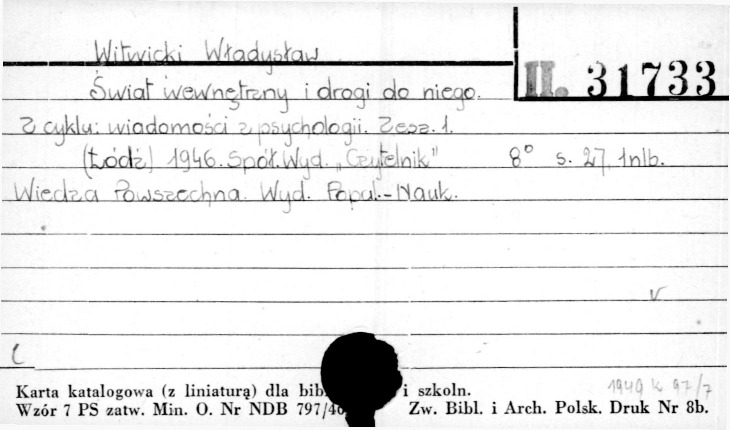 Witwicki Władysław
II. 31733
Świat wewnętrzny i drogi do niego.
Z cyklu: wiadomości z psychologii. Zesz. 1.
(Łódź) 1946. Spół. Wyd. „Czytelnik" 8° s. 27, 1nlb.
Wiedza Powszechna. Wyd. Popul.-Nauk.
v
Karta katalogowa (z liniaturą) dla bib i szkoln.
1949 k 97/7
Wzór 7 PS zatw. Min. O. Nr NDB 797/46 Zw. Bibl. i Arch. Polsk. Druk Nr 8b.